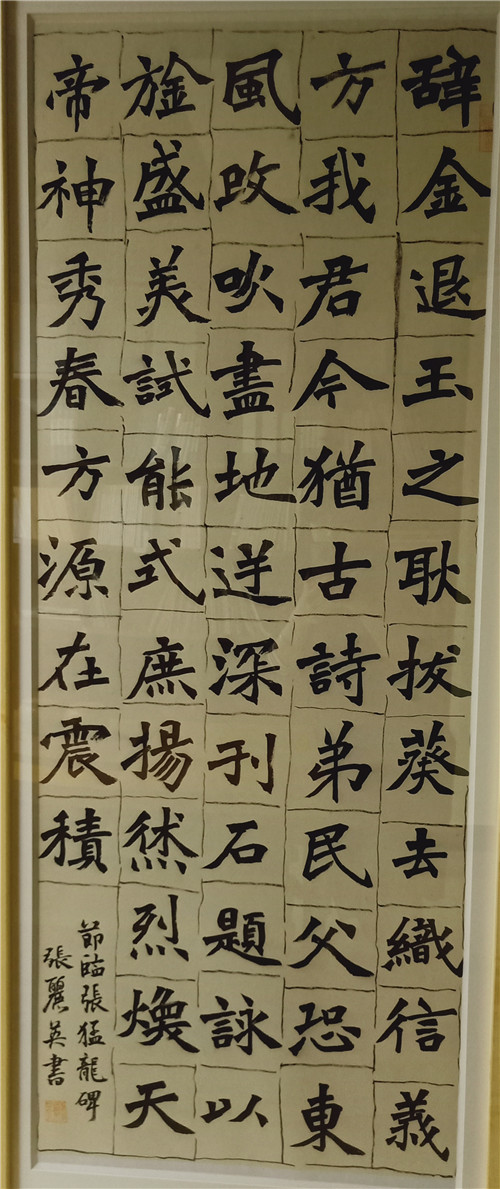 辞金退玉之耿拔葵去織信義
方我君今猶古詩弟民父恐東
風改吹盡地逆深刊石題詠以
旌盛美試能式庶揚烋烈煥天
帝神秀春方源在震積
節臨張猛龍碑
張麗英書